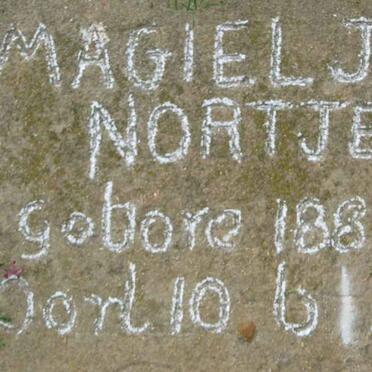 MAGIEL J
NORTJE
gobore 188
Oorl 10 6 1